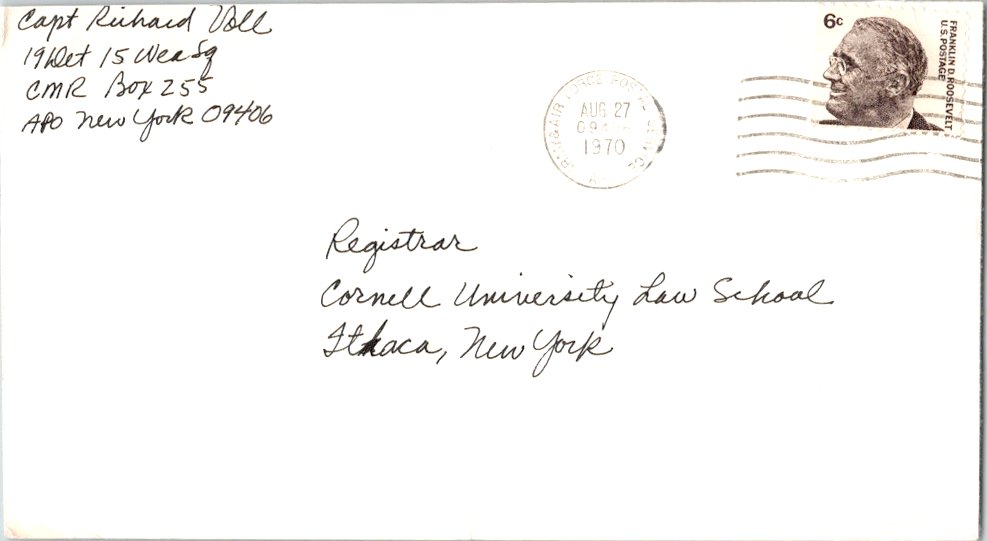 Capt Richard Voll
19 Det 15 Wea Sq
CMR Box 255
APO New York 09406
6c
FRANKLIN D. ROOSEVELT
U.S. POSTAGE
AIR FORCE POSTAL SERVICE
AUG 27
1970
Registrar
Cornell University Law School
Ithaca, New York